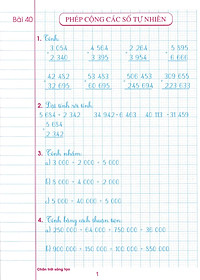 Bài 40
PHÉP CỘNG CÁC SỐ TỰ NHIÊN
1. Tính:
3 054 4 564 2 264 5 595
+ + + +
2 340 3 395 3 954 6 666
42 452 53 453 506 453 309 655
+ + + +
31 240 60 666 245 694 223 633
2. Đặt tính và tính:
5 654 + 2 342 34 942 + 6 463 40 113 + 31 459
5 654
+
2 342
3. Tính nhẩm:
a) 3 000 + 2 000 + 5 000
b) 5 000 + 4 000 + 2 000
c) 5 000 + 40 000 + 5 000
4. Tính bằng cách thuận tiện:
a) 250 000 + 64 000 + 750 000 + 36 000
b) 900 000 + 150 000 + 100 000 + 550 000
Chân trời sáng tạo
1